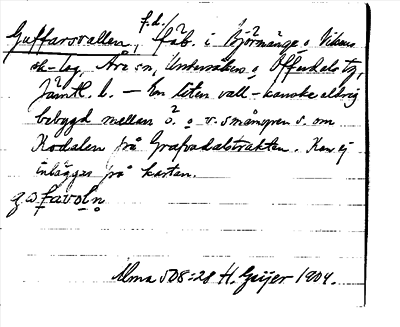 f.d.
Gaffarsvallen, fäb. i Björmänge o Vikens
sk-lag, Åre sn, Undersåkers o Offerdals tg,
Jämtl. l. — En liten vall – kanske aldrig
bebygd mellan ö. o v. Smångren s. om
Rödalen på Grafvadalstrakten. Kan ej
inläggas på kartan.
Alma 508:28 H. Geijer 1904.